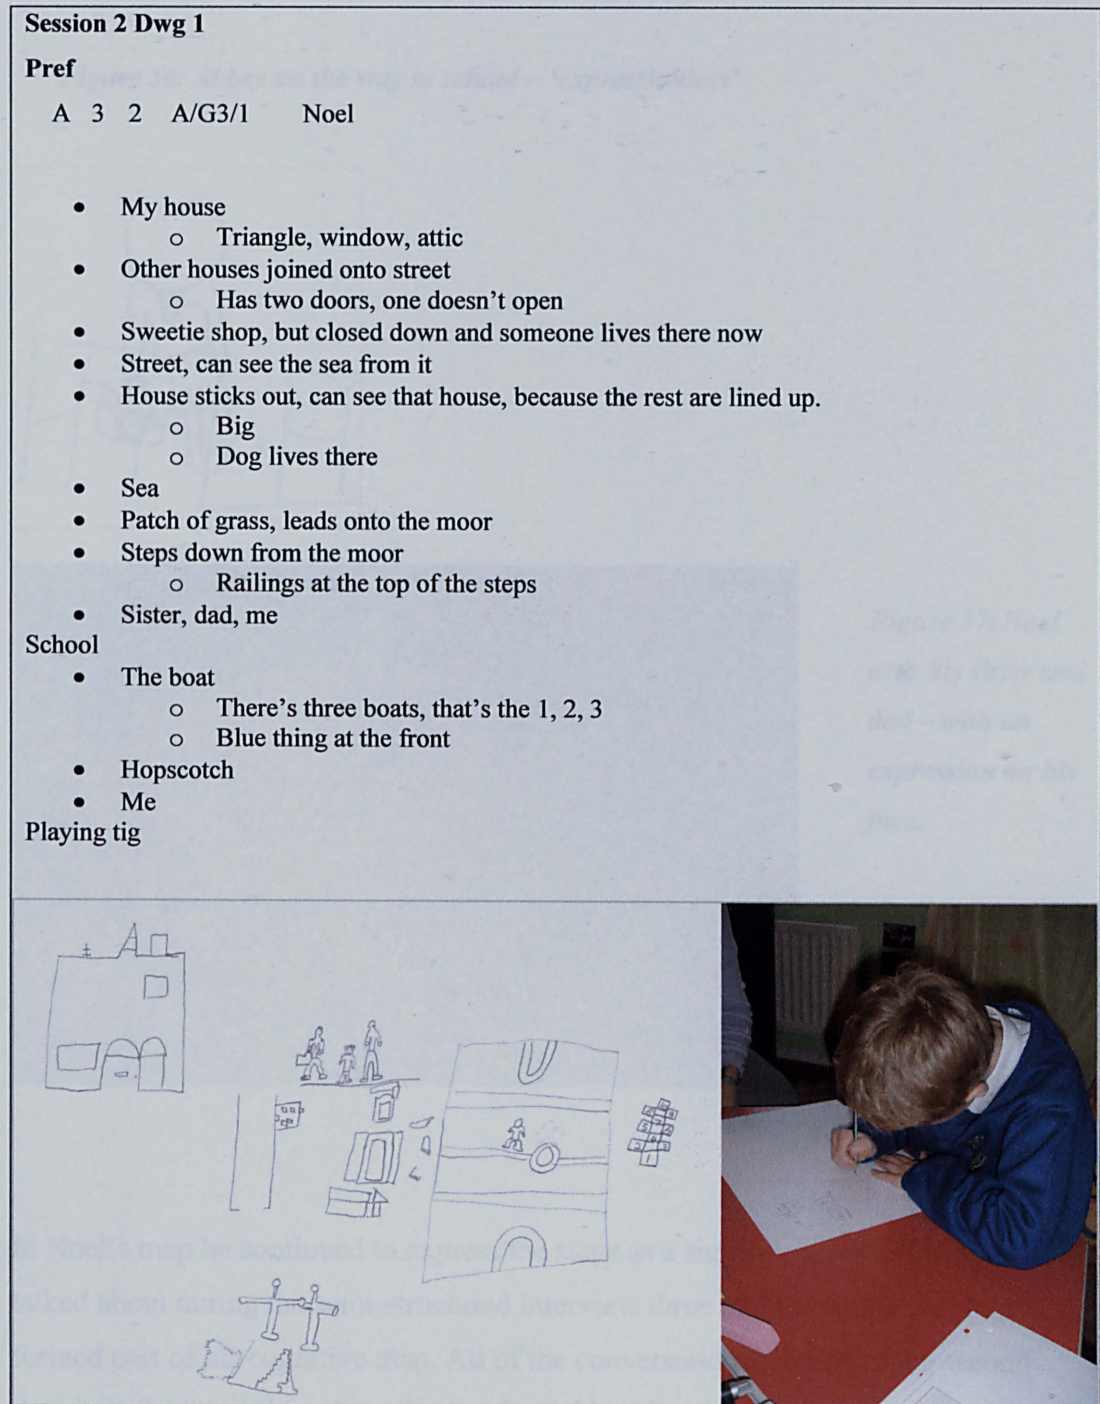 Session 2 Dwg 1
Pref
A 3 2 A/G3/1 Noel
• My house
o Triangle, window, attic
• Other houses joined onto street
o Has two doors, one doesn't open
• Sweetie shop, but closed down and someone lives there now
• Street, can see the sea from it
• House sticks out, can see that house, because the rest are lined up.
o Big
o Dog lives there
• Sea
• Patch of grass, leads onto the moor
• Steps down from the moor
o Railings at the top of the steps
• Sister, dad, me
School
• The boat
o There's three boats, that's the 1, 2, 3
o Blue thing at the front
• Hopscotch
• Me
Playing tig